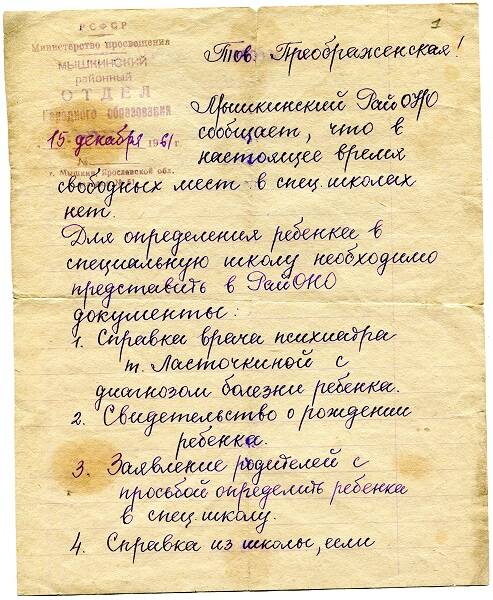 1
РСФСР
Министерство просвещения
МЫШКИНСКИЙ
районный
ОТДЕЛ
Народного образования
15 декабря 1961 г.
№
г. Мышкин, Ярославской обл.
Тов. Преображенская!
Мышкинский РайОНО
сообщает, что в
настоящее время
свободных мест в спец. школах
нет.
Для определения ребенка в
специальную школу необходимо
представить в РайОНО
документы:
1. Справка врача психиатра
т. Ласточкиной с
диагнозом болезни ребенка.
2. Свидетельство о рождении
ребенка.
3. Заявление родителей с
просьбой определить ребенка
в спец. школу.
4. Справка из школы, если